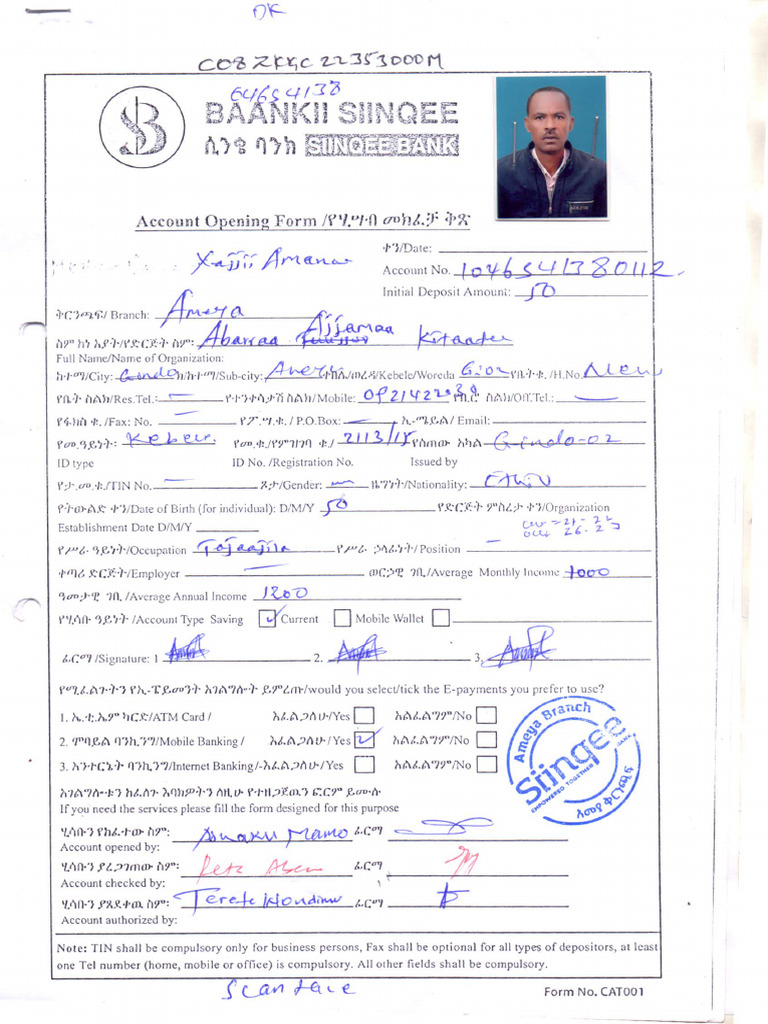 OK
C08ZKGC22353000M
64654138
BAANKII SIINQEE
ሲንቄ ባንክ SIINQEE BANK
Account Opening Form /የሂሣብ መክፈቻ ቅጽ
Xajjii Amanaa
ቀን/Date:
Account No. 1046541380112
Initial Deposit Amount: 50
ቅርንጫፍ/ Branch: Ameya
ስም ከነ አያት/የድርጅት ስም: Abarraa Ajjamaa Kitaataa
Full Name/Name of Organization:
ከተማ/City: Gindo ክ/ከተማ/Sub-city: Ameya ቀበሌ/ወረዳ/Kebele/Woreda የቤት ቁ. /H.No. New
የቤት ስልክ/Res.Tel.: — የተንቀሳቃሽ ስልክ/Mobile: ስልክ/Off.Tel.: —
የፋክስ ቁ. /Fax: No. — የፖ.ሣ.ቁ. / P.O.Box: — ኢ-ሜይል/ Email:
የመ.ዓይነት፡ የመ.ቁ./የምዝገባ ቁ./ 2113/15 የሰጠው አካል Gindo-02
ID type ID No. /Registration No. Issued by
የታ.መ.ቁ./TIN No. — ጾታ/Gender: ዜግነት/Nationality:
የትውልድ ቀን/Date of Birth (for individual): D/M/Y 50 የድርጅት ምስረታ ቀን/Organization
Establishment Date D/M/Y
የሥራ ዓይነት/Occupation የሥራ ኃላፊነት/ Position —
ቀጣሪ ድርጅት/Employer — ወርኃዊ ገቢ/Average Monthly Income 1000
ዓመታዊ ገቢ /Average Annual Income 1200
የሂሳቡ ዓይነት /Account Type Saving Current Mobile Wallet
ፊርማ /Signature: 1 2. 3.
የሚፈልጉትን የኢ-ፔይመንት አገልግሎት ይምረጡ/would you select/tick the E-payments you prefer to use?
1. ኤ.ቲ.ኤም ካርድ/ATM Card / እፈልጋለሁ/Yes አልፈልግም/No
2. ሞባይል ባንኪንግ/Mobile Banking / እፈልጋለሁ/Yes አልፈልግም/No
3. ኢንተርኔት ባንኪንግ/Internet Banking/-እፈልጋለሁ/Yes አልፈልግም/No
Ameya Branch
Siinqee
BANK
EMPOWERED TOGETHER
አገልግሎቱን ከፈለጉ እባክዎትን ለዚሁ የተዘጋጀዉን ፎርም ይሙሉ
If you need the services please fill the form designed for this purpose
ሂሳቡን የከፈተው ስም፡ Mamo ፊርማ
Account opened by:
ሂሳቡን ያረጋገጠው ስም፡ ፊርማ
Account checked by:
ሂሳቡን ያጸደቀዉ ስም፡ ፊርማ
Account authorized by:
Note: TIN shall be compulsory only for business persons, Fax shall be optional for all types of depositors, at least
one Tel number (home, mobile or office) is compulsory. All other fields shall be compulsory.
Form No. CAT001